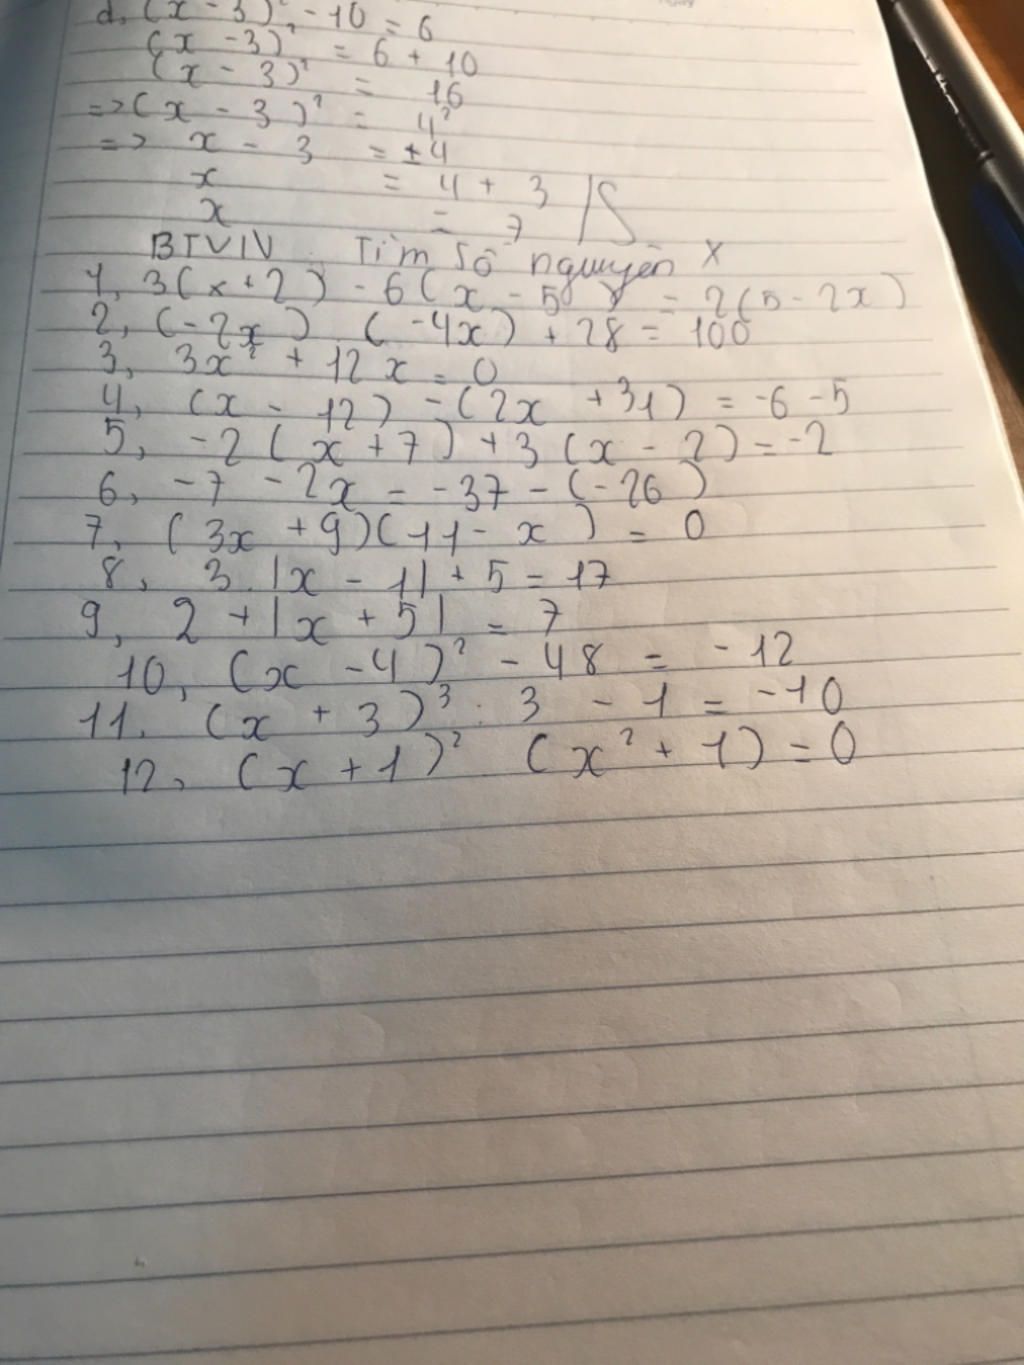 d, (x - 3)², - 10 = 6
(x - 3)² = 6 + 10
(x - 3)² = 16
=> (x - 3)² = 4²
=> x - 3 = ±4
x = 4 + 3
x = 7
BTVN Tìm số nguyên x
1, 3(x + 2) - 6(x - 5) = 2(5 - 2x)
2, (-2x) (-4x) + 28 = 100
3, 3x² + 12x = 0
4, (x - 12) - (2x + 31) = -6 - 5
5, -2(x + 7) + 3(x - 2) = -2
6, -7 - 2x = -37 - (-26)
7, (3x + 9)(11 - x) = 0
8, 3.|x - 1| + 5 = 17
9, 2 + |x + 5| = 7
10, (x - 4)² - 48 = -12
11. (x + 3)³ . 3 - 1 = -10
12, (x + 1)² (x² + 1) = 0